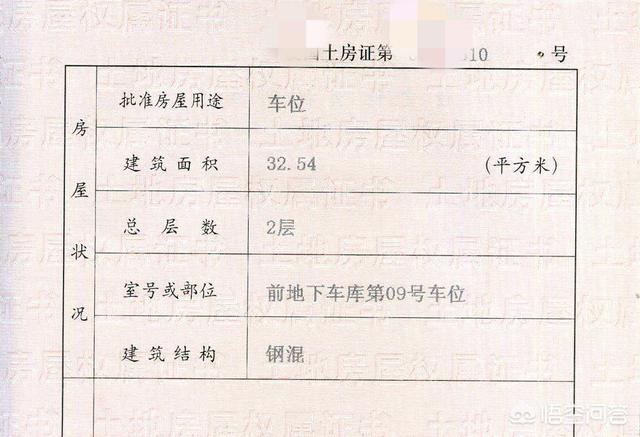 土房证第 10 号
批准房屋用途 车位
房屋状况
建筑面积 32.54 (平方米)
总层数 2层
室号或部位 前地下车库第09号车位
建筑结构 钢混
悟空问答